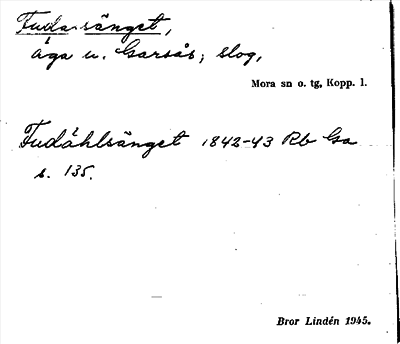 Fudasänget,
äga u. Garsås; slog,
Mora sn o. tg, Kopp. l.
Fudåhlsänget 1842-43 Rb Ga
s. 135.
Bror Lindén 1945.